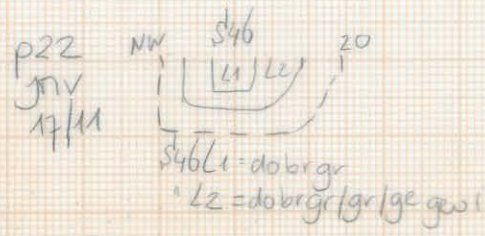 p22
jnv
17/11
NW S46 ZO
L1 L2
S46L1 = dobrgr
" L2 = dobrgr/gr/ge gevl